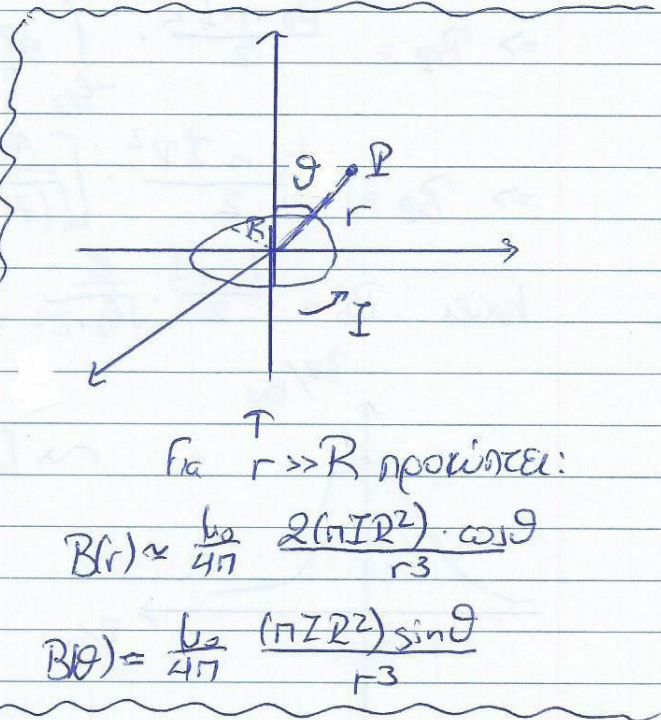 ϑ
P
R
r
I
Για r >> R προκύπτει:
B(r) ≈ μ₀/4π 2(πIR²)·cosϑ/r³
B(ϑ) = μ₀/4π (πIR²)sinϑ/r³